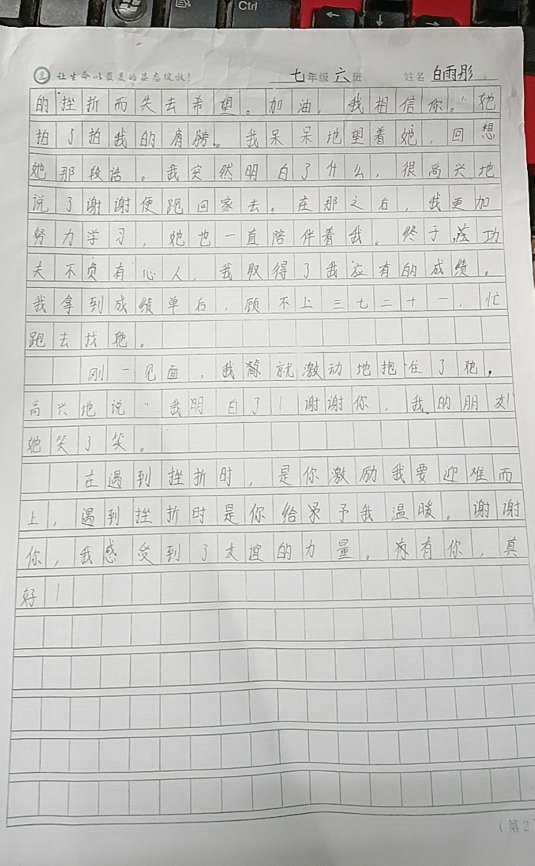 Ctrl
让生命以最美的姿态绽放！ 七年级 六 班 姓名 白雨彤
的挫折而失去希望。加油，我相信你。”她
拍了拍我的肩膀。我呆呆地望着她，回想
她那段话。我突然明白了什么，很高兴地
说了谢谢便跑回家去。在那之后，我更加
努力学习，她也一直陪伴着我。终于，功
夫不负有心人，我取得了我应有的成绩。
我拿到成绩单后，顾不上三七二十一，忙
跑去找她。
刚一见面，我就激动地抱住了她，
高兴地说：“我明白了！谢谢你，我的朋友！”
她笑了笑。
在遇到挫折时，是你激励我要迎难而
上，遇到挫折时是你给予我温暖。谢谢
你，我感受到了友谊的力量。有你，真
好！
（第2